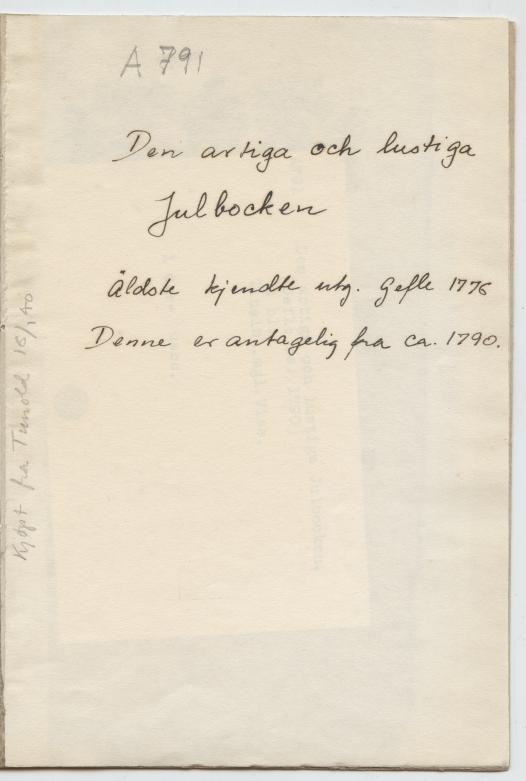 A 791
Den artiga och lustiga
Julbocken
Äldste kjendte utg. Gefle 1776
Denne er antagelig fra ca. 1790.
Kjøpt fra